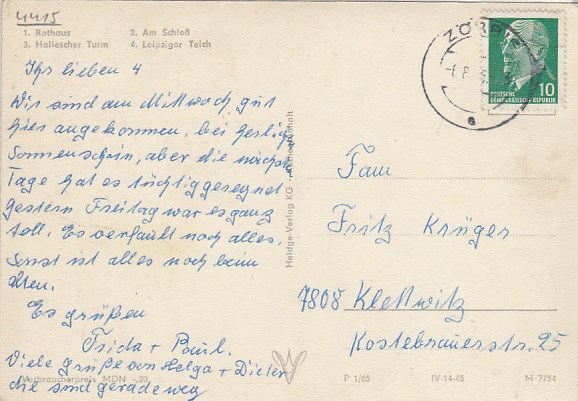 4415
1. Rathaus 2. Am Schloß
3. Hallescher Turm 4. Leipziger Teich
Ihr lieben 4
Wir sind am Mittwoch gut
hier angekommen, bei herlig
Sonnenschein, aber die nächste
Tage hat es tüchtig geregnet
gestern Freitag war es ganz
toll. Es verfault noch alles.
Sonst ist alles noch beim
alten.
Es grüßen
Frida + Paul.
Viele grüße von Helga + Dieter
die sind gerade weg
Verbraucherpreis MDN -,20
Heldge-Verlag KG
ZÖRBIG
10
DEUTSCHE
DEMOKRATISCHE REPUBLIK
a
Fam
Fritz Krüger
7808 Klettwitz
Kostebrauerstr. 25
P 1/65 IV-14-45 M 7754